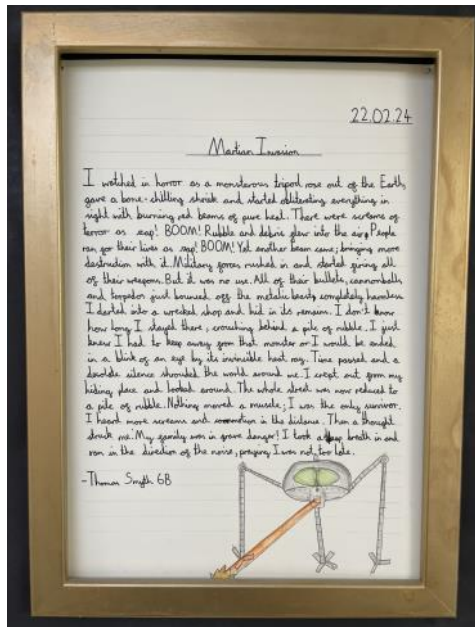 22.02.24
Martian Invasion
I watched in horror as a monsterous tripod rose out of the Earth,
gave a bone-chilling shriek and started obliterating everything in
sight with burning red beams of pure heat. There were screams of
terror as zap! BOOM! Rubble and debris flew into the air. People
ran for their lives as zap! BOOM! Yet another beam came, bringing more
destruction with it. Military forces rushed in and started firing all
of their weapons. But it was no use. All of their bullets, cannonballs
and torpedos just bounced off the metalic beast, completely harmless.
I darted into a wrecked shop and hid in its remains. I don't know
how long I stayed there, crouching behind a pile of rubble. I just
knew I had to keep away from that monster or I would be ended
in a blink of an eye by its invincible heat ray. Time passed and a
desolate silence shrouded the world around me. I crept out from my
hiding place and looked around. The whole street was now reduced to
a pile of rubble. Nothing moved a muscle; I was the only survivor.
I heard more screams and in the distance. Then a thought
struck me: My family was in grave danger! I took a deep breath in and
ran in the direction of the noise, praying I was not too late.
-Thomas Smyth 6B